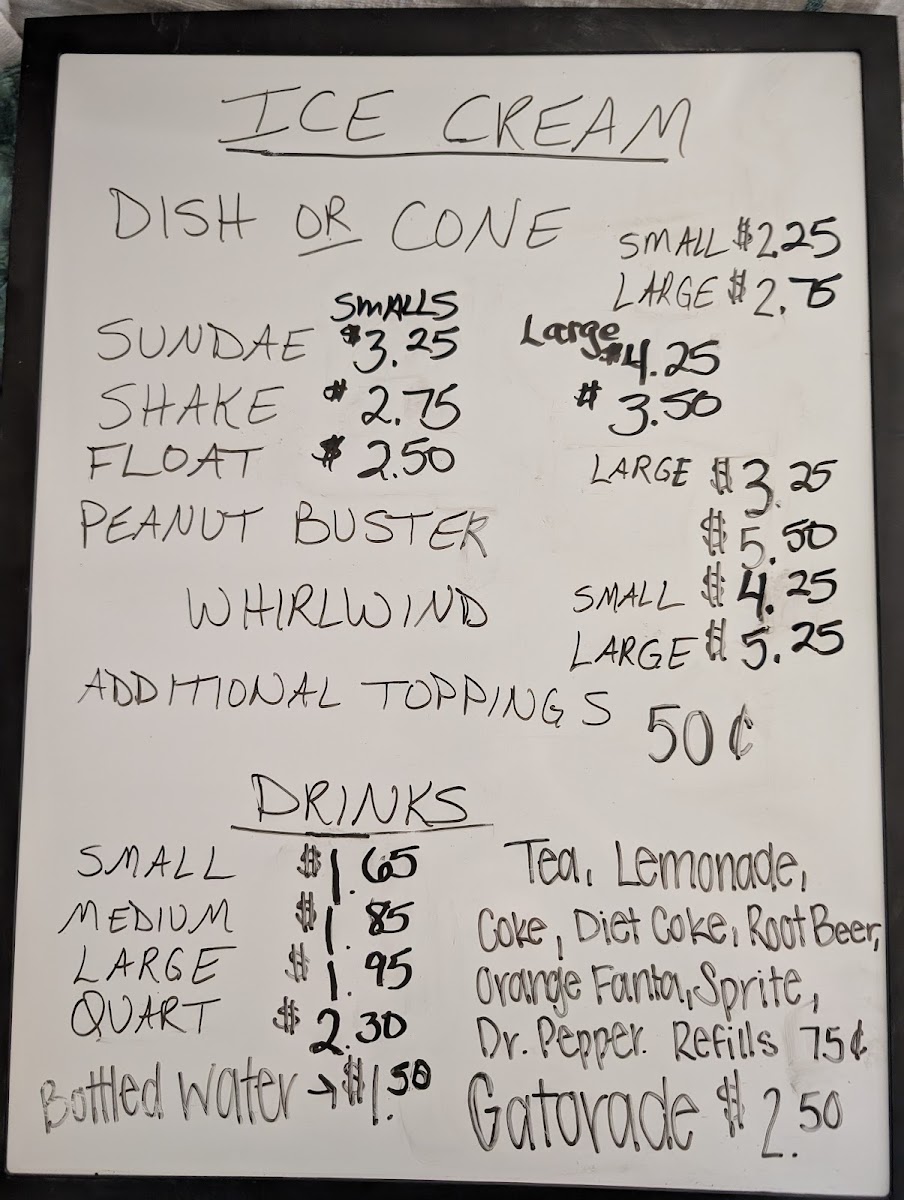 ICE CREAM
DISH OR CONE SMALL $2.25
LARGE $2.75
SMALLS Large
SUNDAE $3.25 $4.25
SHAKE $2.75 $3.50
FLOAT $2.50 LARGE $3.25
PEANUT BUSTER $5.50
WHIRLWIND SMALL $4.25
LARGE $5.25
ADDITIONAL TOPPINGS 50¢
DRINKS
SMALL $1.65
MEDIUM $1.85
LARGE $1.95
QUART $2.30
Bottled Water → $1.50
Tea, Lemonade,
Coke, Diet Coke, Root Beer,
Orange Fanta, Sprite,
Dr. Pepper. Refills 75¢
Gatorade $2.50